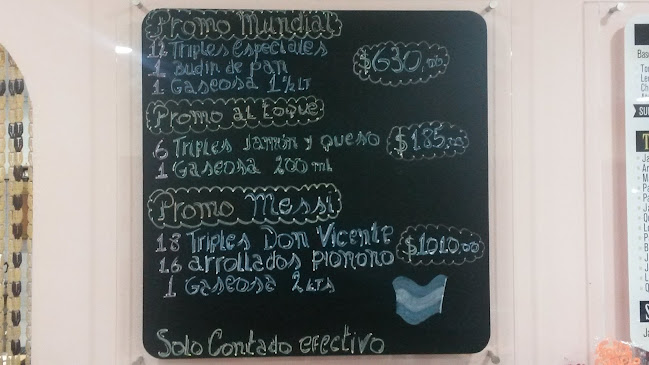 Promo Mundial
12 Triples Especiales
$630,00
1 Budin de pan
1 Gaseosa 1½ LT
Promo al toque
6 Triples Jamón y queso
$185,00
1 Gaseosa 200 ml
Promo Messi
18 Triples Don Vicente
$1010,00
16 arrollados pionono
1 Gaseosa 2 LTS
Solo Contado efectivo